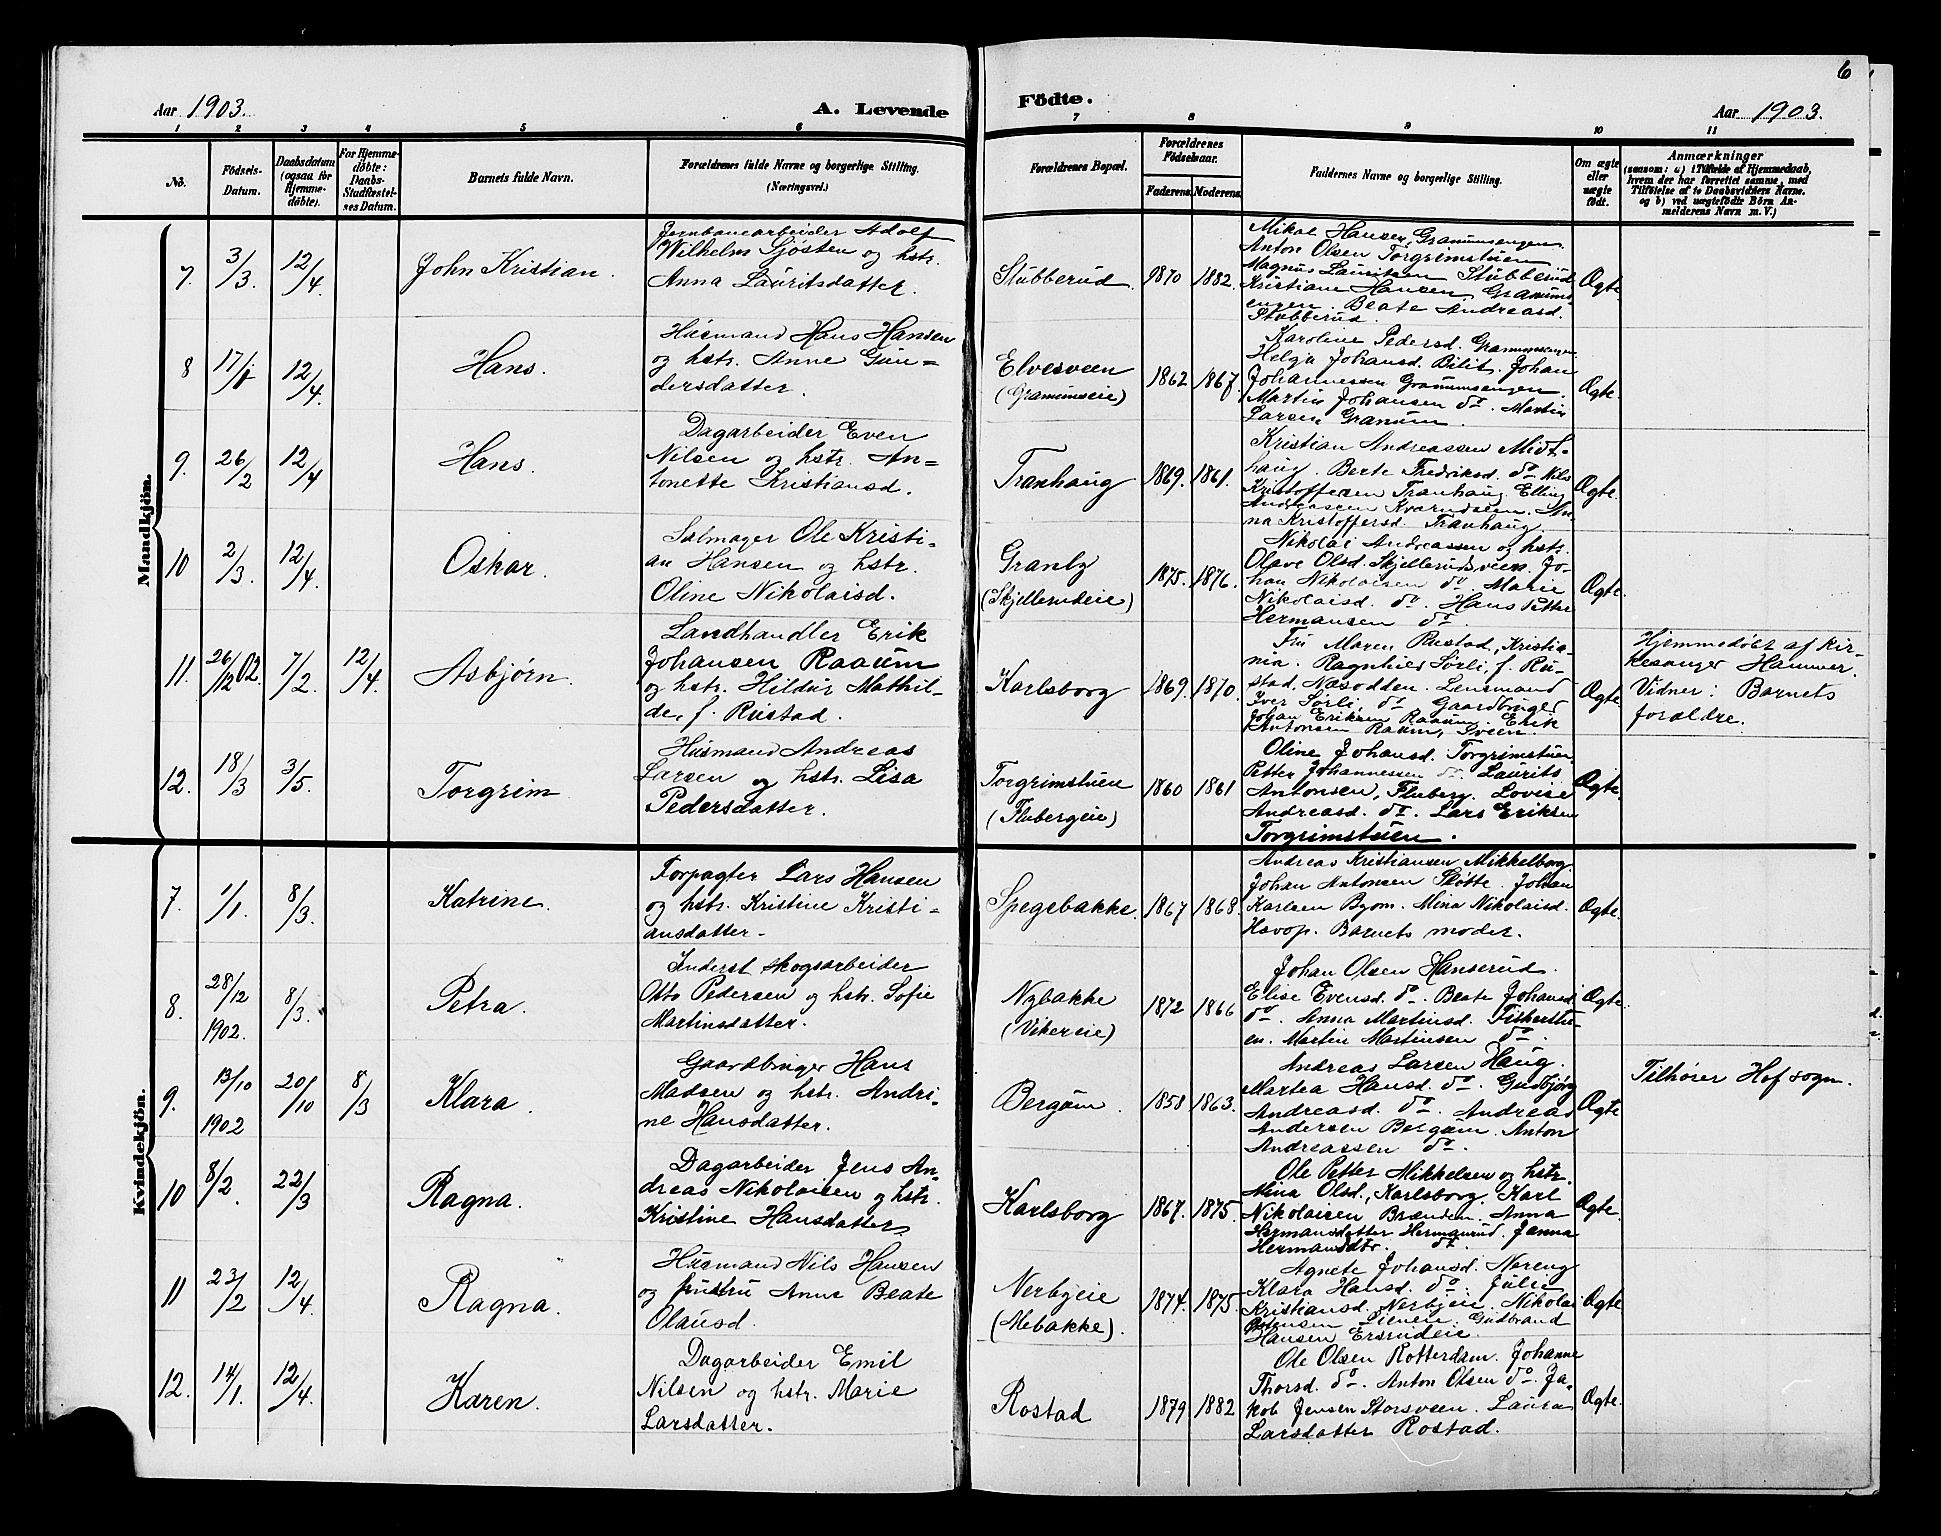 6
Aar 1903.
A. Levende
Födte.
Aar 1903.
1 2 3 4 5 6 7 8 9 10 11
No.
Födsels-
Datum.
Daabsdatum
(ogsaa for
Hjemme-
döbte).
For Hjemme-
döbte:
Daabs-
Stadfæstel-
ses Datum.
Barnets fulde Navn.
Forældrenes fulde Navne og borgerlige Stilling.
(Næringsvei.)
Forældrenes Bopæl.
Forældrenes
Födselsaar.
Faderens. Moderens.
Faddernes Navne og borgerlige Stilling.
Om ægte
eller
uægte
födt.
Anmærkninger
(saasom: a) i Tilfælde af Hjemmedaab,
hvem der har forrettet samme, med
Tilföielse af to Daabsvidners Navne.
og b) ved uægtefödte Börn An-
melderens Navn m. V.)
Mandkjön.
7. 3/3 12/4. John Kristian.
Jernbanearbeider Adolf
Wilhelm Sjösten og hstr.
Anna Lauritsdatter.
Stubberud. 1870 1882.
Mikal Hansen, Granumsengen.
Anton Olsen Torgrimstuen
Magnus Lauritsen Stubberud
Kristiane Hansen Granums-
engen. Beate Andreasd.
Stubberud.
Ægte.
8 17/1 12/4. Hans.
Husmand Hans Hansen
og hstr. Anne Gun-
dersdatter.
Elvesveen
(Granumseie)
1862 1867.
Karoline Pedersd. Granumsengen
Helga Johansd. Bilit. Johan
Johannessen Granumsengen.
Martin Johansen do. Martin
Larsen Granum.
Ægte.
9. 26/2 12/4 Hans.
Dagarbeider Even
Nilsen og hstr. An-
tonette Kristiansd.
Tranhaug 1869. 1861.
Kristian Andreassen Midt-
haug. Berte Fredriksd. do Nils
Kristoffersen Tranhaug Elling
Andreassen Kværndalen. An-
na Kristoffersd. Tranhaug
Ægte.
10 2/3. 12/4. Oskar.
Salmager Ole Kristi-
an Hansen og hstr.
Oline Nikolaisd.
Granby
(Skjellerudeie)
1875. 1876.
Nikolai Andreassen og hstr.
Olave Olsd. Skjellerudsveen. Jo-
han Nikolaisen do Marie
Nikolaisd. do. Hans Petter
Hermansen do
Ægte.
11. 26/12 02. 7/2. 12/4. Asbjørn.
Landhandler Erik
Johansen Raaum
og hstr. Hildur Mathil-
de, f. Rustad.
Karlsborg 1869. 1870.
Fru Maren Rustad, Kristia-
nia. Ragnhild Sørli, f. Ru-
stad, Næsodden. Lensmand
Iver Sørli, do Gaardbruger
Johan Eriksen Raaum. Erik
Antonsen Raaum, Sveen.
Ægte
Hjemmedøbt af kir-
kesanger Hammer.
Vidner: Barnets
forældre.
12. 18/3 3/5. Torgrim
Husmand Andreas
Larsen og hstr. Lisa
Pedersdatter.
Torgrimstuen
(Flubergeie)
1860 1861
Oline Johansd. Torgrimstuen
Petter Johannessen do. Laurits
Antonsen, Fluberg. Lovise
Andreasd. do. Lars Eriksen
Torgrimstuen.
Ægte.
Kvindekjön.
7. 1/1. 8/3. Katrine.
Forpagter Lars Hansen
og hstr. Kristine Kristi-
ansdatter.
Spegebakke. 1867 1868.
Andreas Kristiansen Mikkelborg
Johan Antonsen Støtte. Johan
Karlsen Byom. Mina Nikolaisd.
Havop. Barnets moder.
Ægte.
8. 28/12 1902. 8/3. Petra.
Inderst skogsarbeider
Otto Pedersen og hstr. Sofie
Martinsdatter.
Nybakke
(Vikereie)
1872 1866
Johan Olsen Hanserud.
Elise Evensd. do. Beate Johansd
do. Anna Martinsd. Fiskerstu-
en. Martin Martinsen do.
Ægte.
9. 13/10 1902 20/10 8/3 Klara.
Gaardbruger Hans
Madsen og hstr. Andri-
ne Hansdatter.
Bergum. 1858 1863.
Andreas Larsen Haug.
Martea Hansd. do. Gudbjørg
Andreasd. do. Andreas
Andersen Bergum. Anton
Andreassen do.
Ægte
Tilhører Hof sogn.
10 8/2. 22/3 Ragna.
Dagarbeider Jens An-
dreas Nikolaisen og hstr.
Kristine Hansdatter.
Karlsborg 1867. 1875.
Ole Petter Mikkelsen og hstr.
Mina Olsd., Karlsborg. Karl
Nikolaisen Brænden. Anna
Hermansdatter Hermanrud. Janna
Hermansdtr. do.
Ægte.
11 23/2 12/4. Ragna.
Husmand Nils Hansen
og hustru Anne Beate
Olausd.
Nerbyeie
(Mebakke).
1874. 1875.
Agnete Johansd. Noreng
Klara Hansd. do. Julie
Kristiansd. Nerbyeie. Nikolai
Gudbrand
Hansen
Ægte
12. 14/1. 12/4. Karen.
Dagarbeider Emil
Nilsen og hstr. Marie
Larsdatter.
Rostad 1879 1882
Ole Olsen Rotterdam. Johanne
Thorsd. do. Anton Olsen do. Ja-
kob Jensen Storsveen. Laura
Larsdatter Rostad.
Ægte.